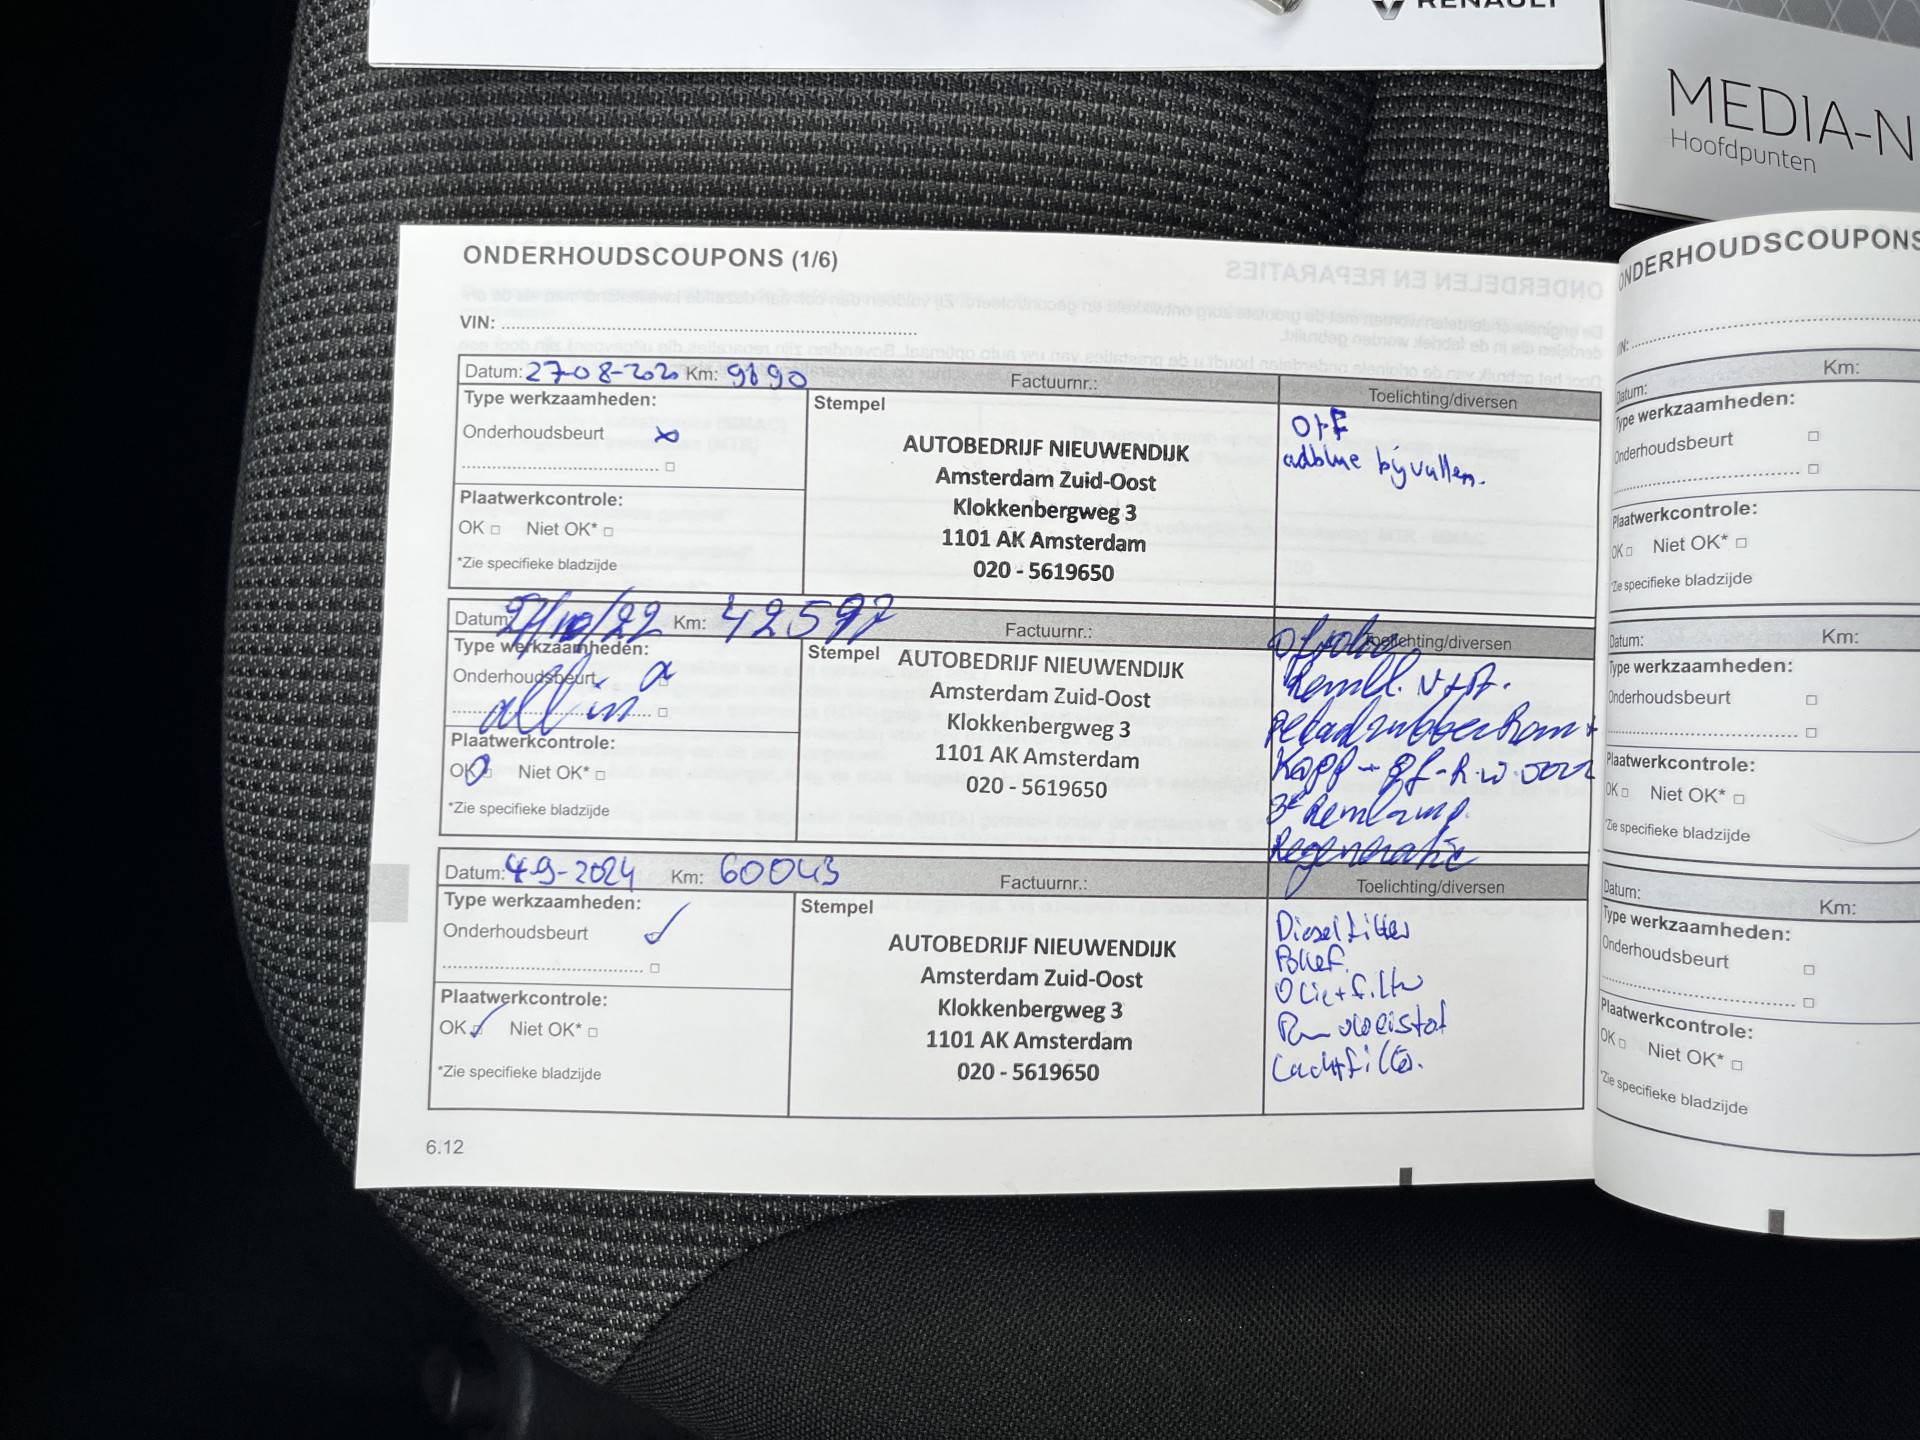 RENAULT
MEDIA-N
Hoofdpunten
ONDERHOUDSCOUPONS (1/6)
VIN:
Datum: 27-08-2020 Km: 9890 Factuurnr.: Toelichting/diversen
Type werkzaamheden:
Onderhoudsbeurt
Plaatwerkcontrole:
OK Niet OK*
*Zie specifieke bladzijde
Stempel
AUTOBEDRIJF NIEUWENDIJK
Amsterdam Zuid-Oost
Klokkenbergweg 3
1101 AK Amsterdam
020 - 5619650
O+F
adblue bijvullen.
Datum: Km: 42597 Factuurnr.: Toelichting/diversen
Type werkzaamheden:
Onderhoudsbeurt
all in
Plaatwerkcontrole:
OK Niet OK*
*Zie specifieke bladzijde
Stempel
AUTOBEDRIJF NIEUWENDIJK
Amsterdam Zuid-Oost
Klokkenbergweg 3
1101 AK Amsterdam
020 - 5619650
Rembl. V+A.
3e Remlamp.
Regeneratie
Datum: 4-9-2024 Km: 60043 Factuurnr.: Toelichting/diversen
Type werkzaamheden:
Onderhoudsbeurt
Plaatwerkcontrole:
OK Niet OK*
*Zie specifieke bladzijde
Stempel
AUTOBEDRIJF NIEUWENDIJK
Amsterdam Zuid-Oost
Klokkenbergweg 3
1101 AK Amsterdam
020 - 5619650
Dieselfilter
Olie+filter
Luchtfilter.
6.12
ONDERHOUDSCOUPONS
Datum: Km:
Type werkzaamheden:
Onderhoudsbeurt
Plaatwerkcontrole:
OK Niet OK*
*Zie specifieke bladzijde
Datum: Km:
Type werkzaamheden:
Onderhoudsbeurt
Plaatwerkcontrole:
OK Niet OK*
*Zie specifieke bladzijde
Datum: Km:
Type werkzaamheden:
Onderhoudsbeurt
Plaatwerkcontrole:
OK Niet OK*
*Zie specifieke bladzijde